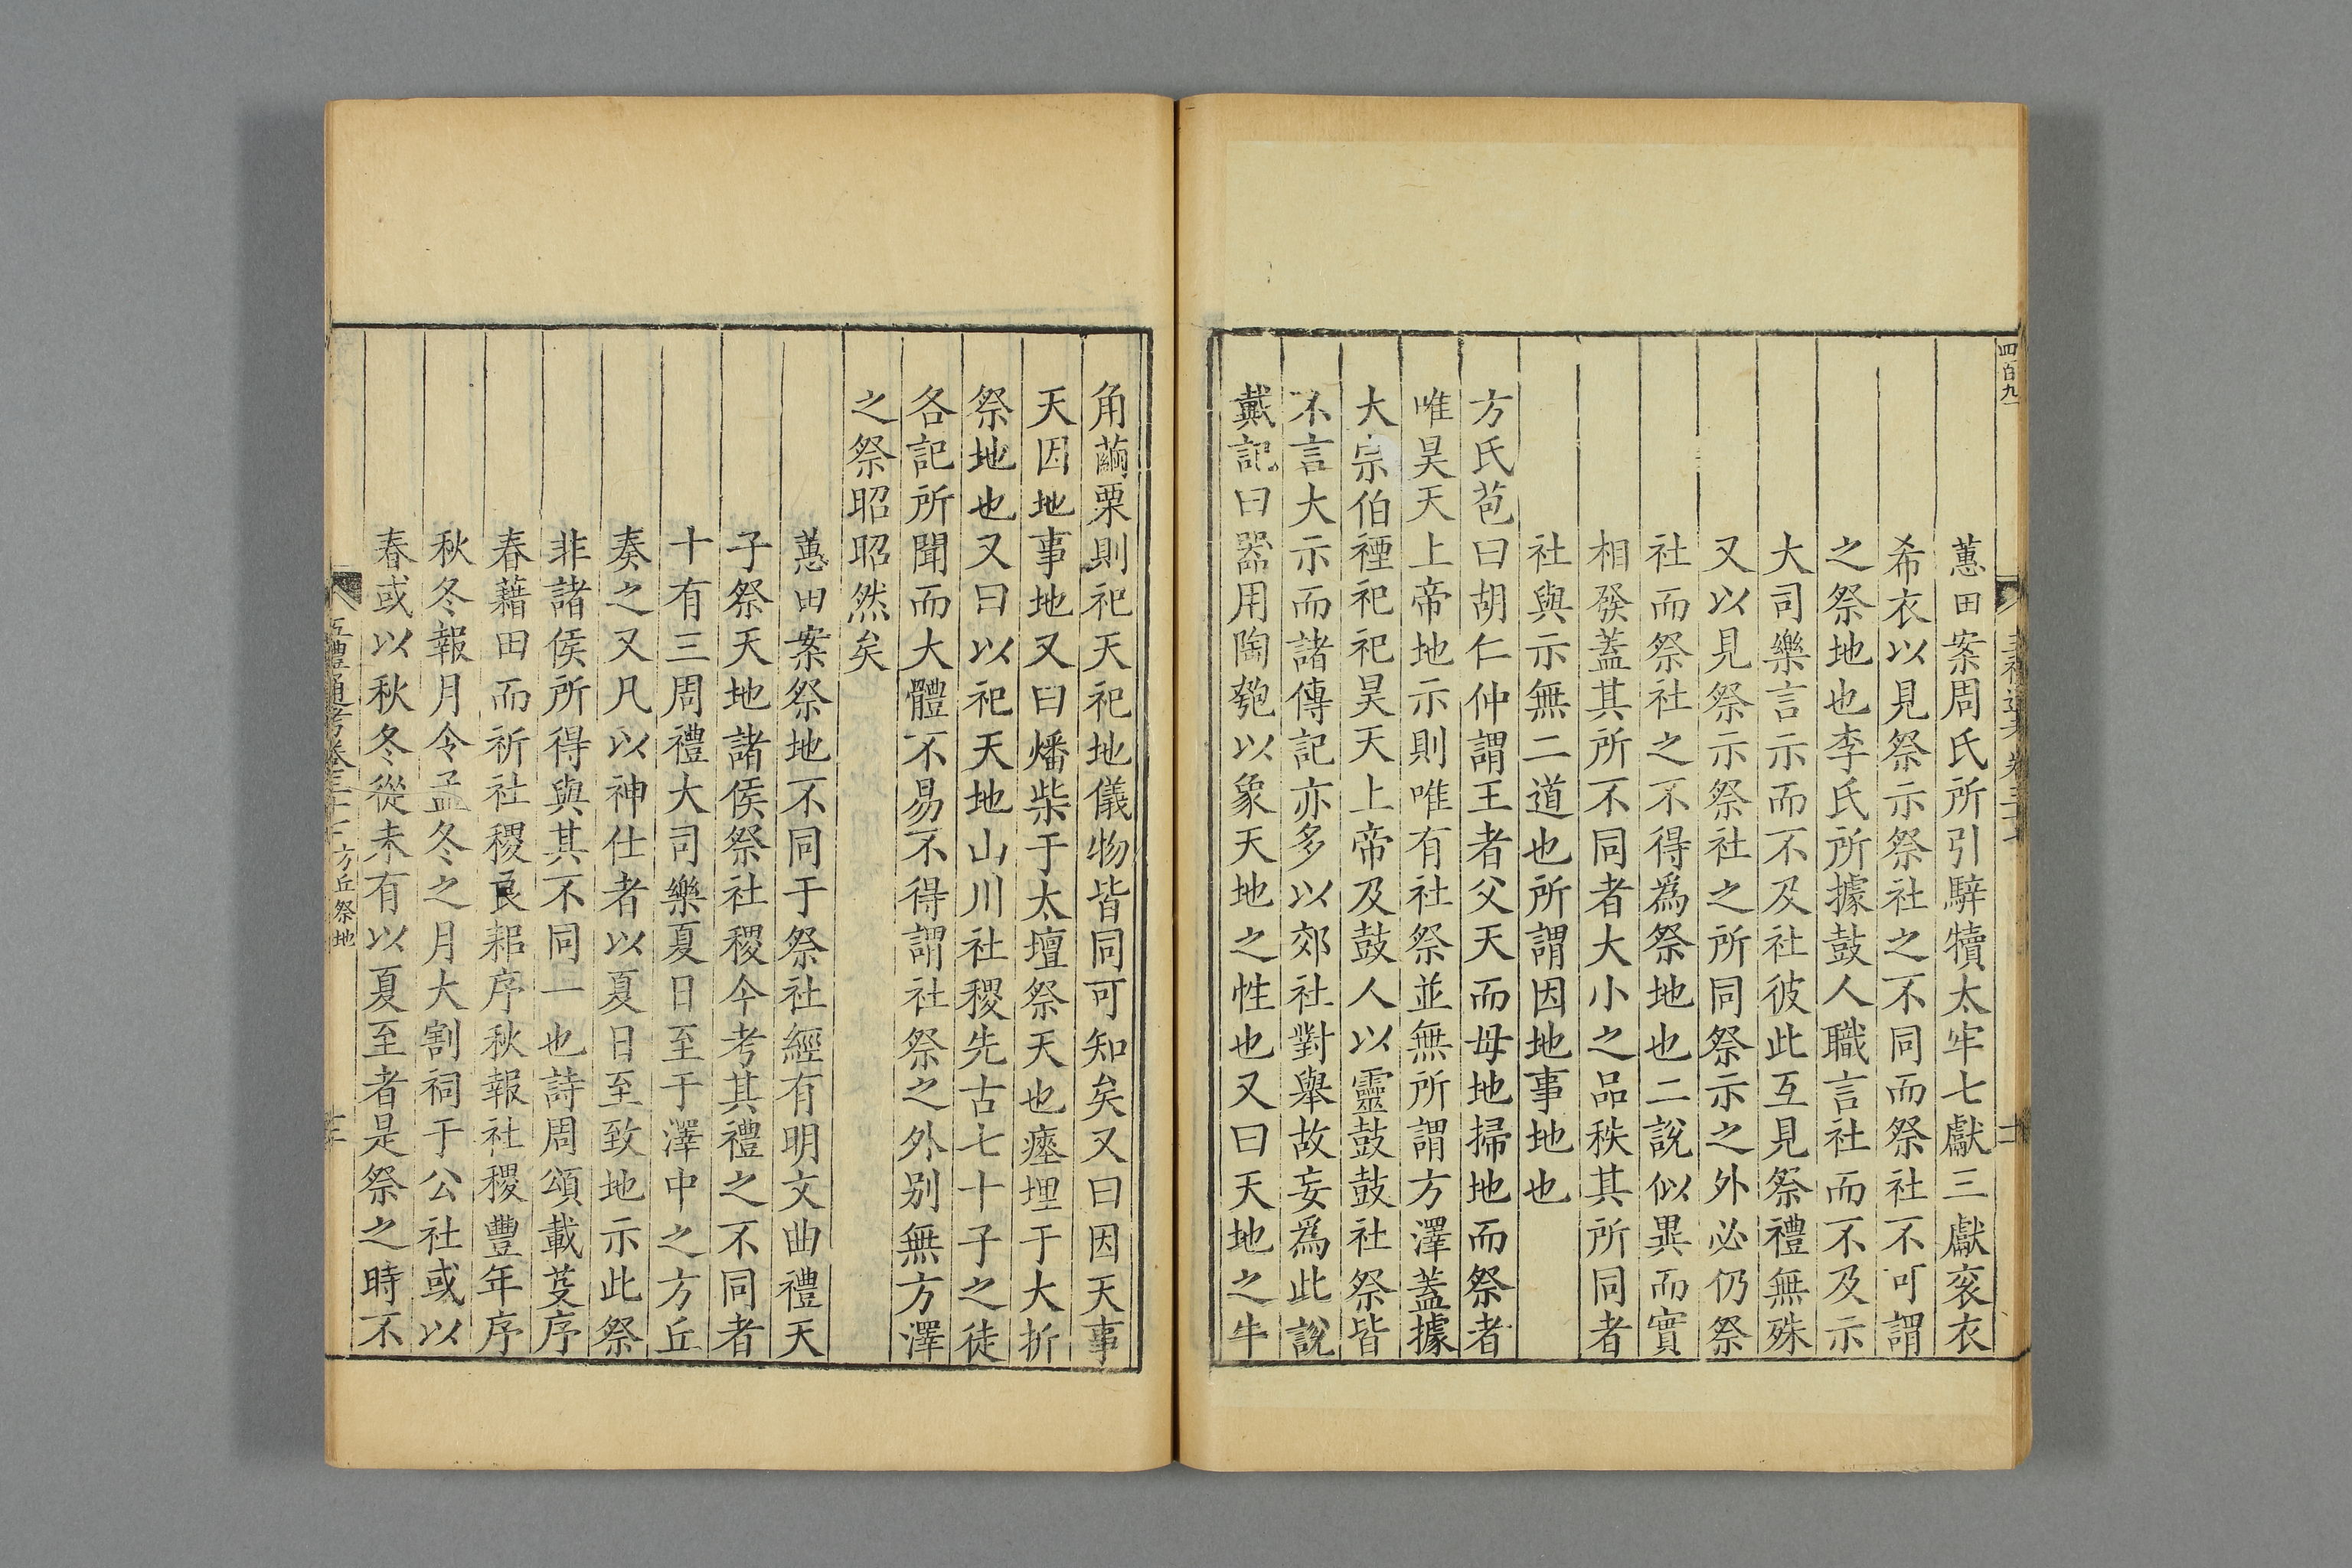 四百九
蕙田案周氏所引騂犢太牢七獻三獻衮衣
希衣以見祭示祭社之不同而祭社不可謂
之祭地也李氏所據鼓人職言社而不及示
大司樂言示而不及社彼此互見祭禮無殊
又以見祭示祭社之所同祭示之外必仍祭
社而祭社之不得爲祭地也二說似異而實
相發蓋其所不同者大小之品秩其所同者
社與示無二道也所謂因地事地也
方氏苞曰胡仁仲謂王者父天而母地掃地而祭者
唯昊天上帝地示則唯有社祭並無所謂方澤蓋據
大宗伯禋祀祀昊天上帝及鼓人以靈鼓鼓社祭皆
不言大示而諸傳記亦多以郊社對舉故妄爲此說
戴記曰器用陶匏以象天地之性也又曰天地之牛
角繭栗則祀天祀地儀物皆同可知矣又曰因天事
天因地事地又曰燔柴于太壇祭天也瘞埋于大折
祭地也又曰以祀天地山川社稷先古七十子之徒
各記所聞而大體不易不得謂社祭之外别無方澤
之祭昭昭然矣
蕙田案祭地不同于祭社經有明文曲禮天
子祭天地諸侯祭社稷今考其禮之不同者
十有三周禮大司樂夏日至于澤中之方丘
奏之又凡以神仕者以夏日至致地示此祭
非諸侯所得與其不同一也詩周頌載芟序
春藉田而祈社稷良耜序秋報社稷豐年序
秋冬報月令孟冬之月大割祠于公社或以
春或以秋冬從未有以夏至者是祭之時不
五禮通考卷三十七 方丘祭地